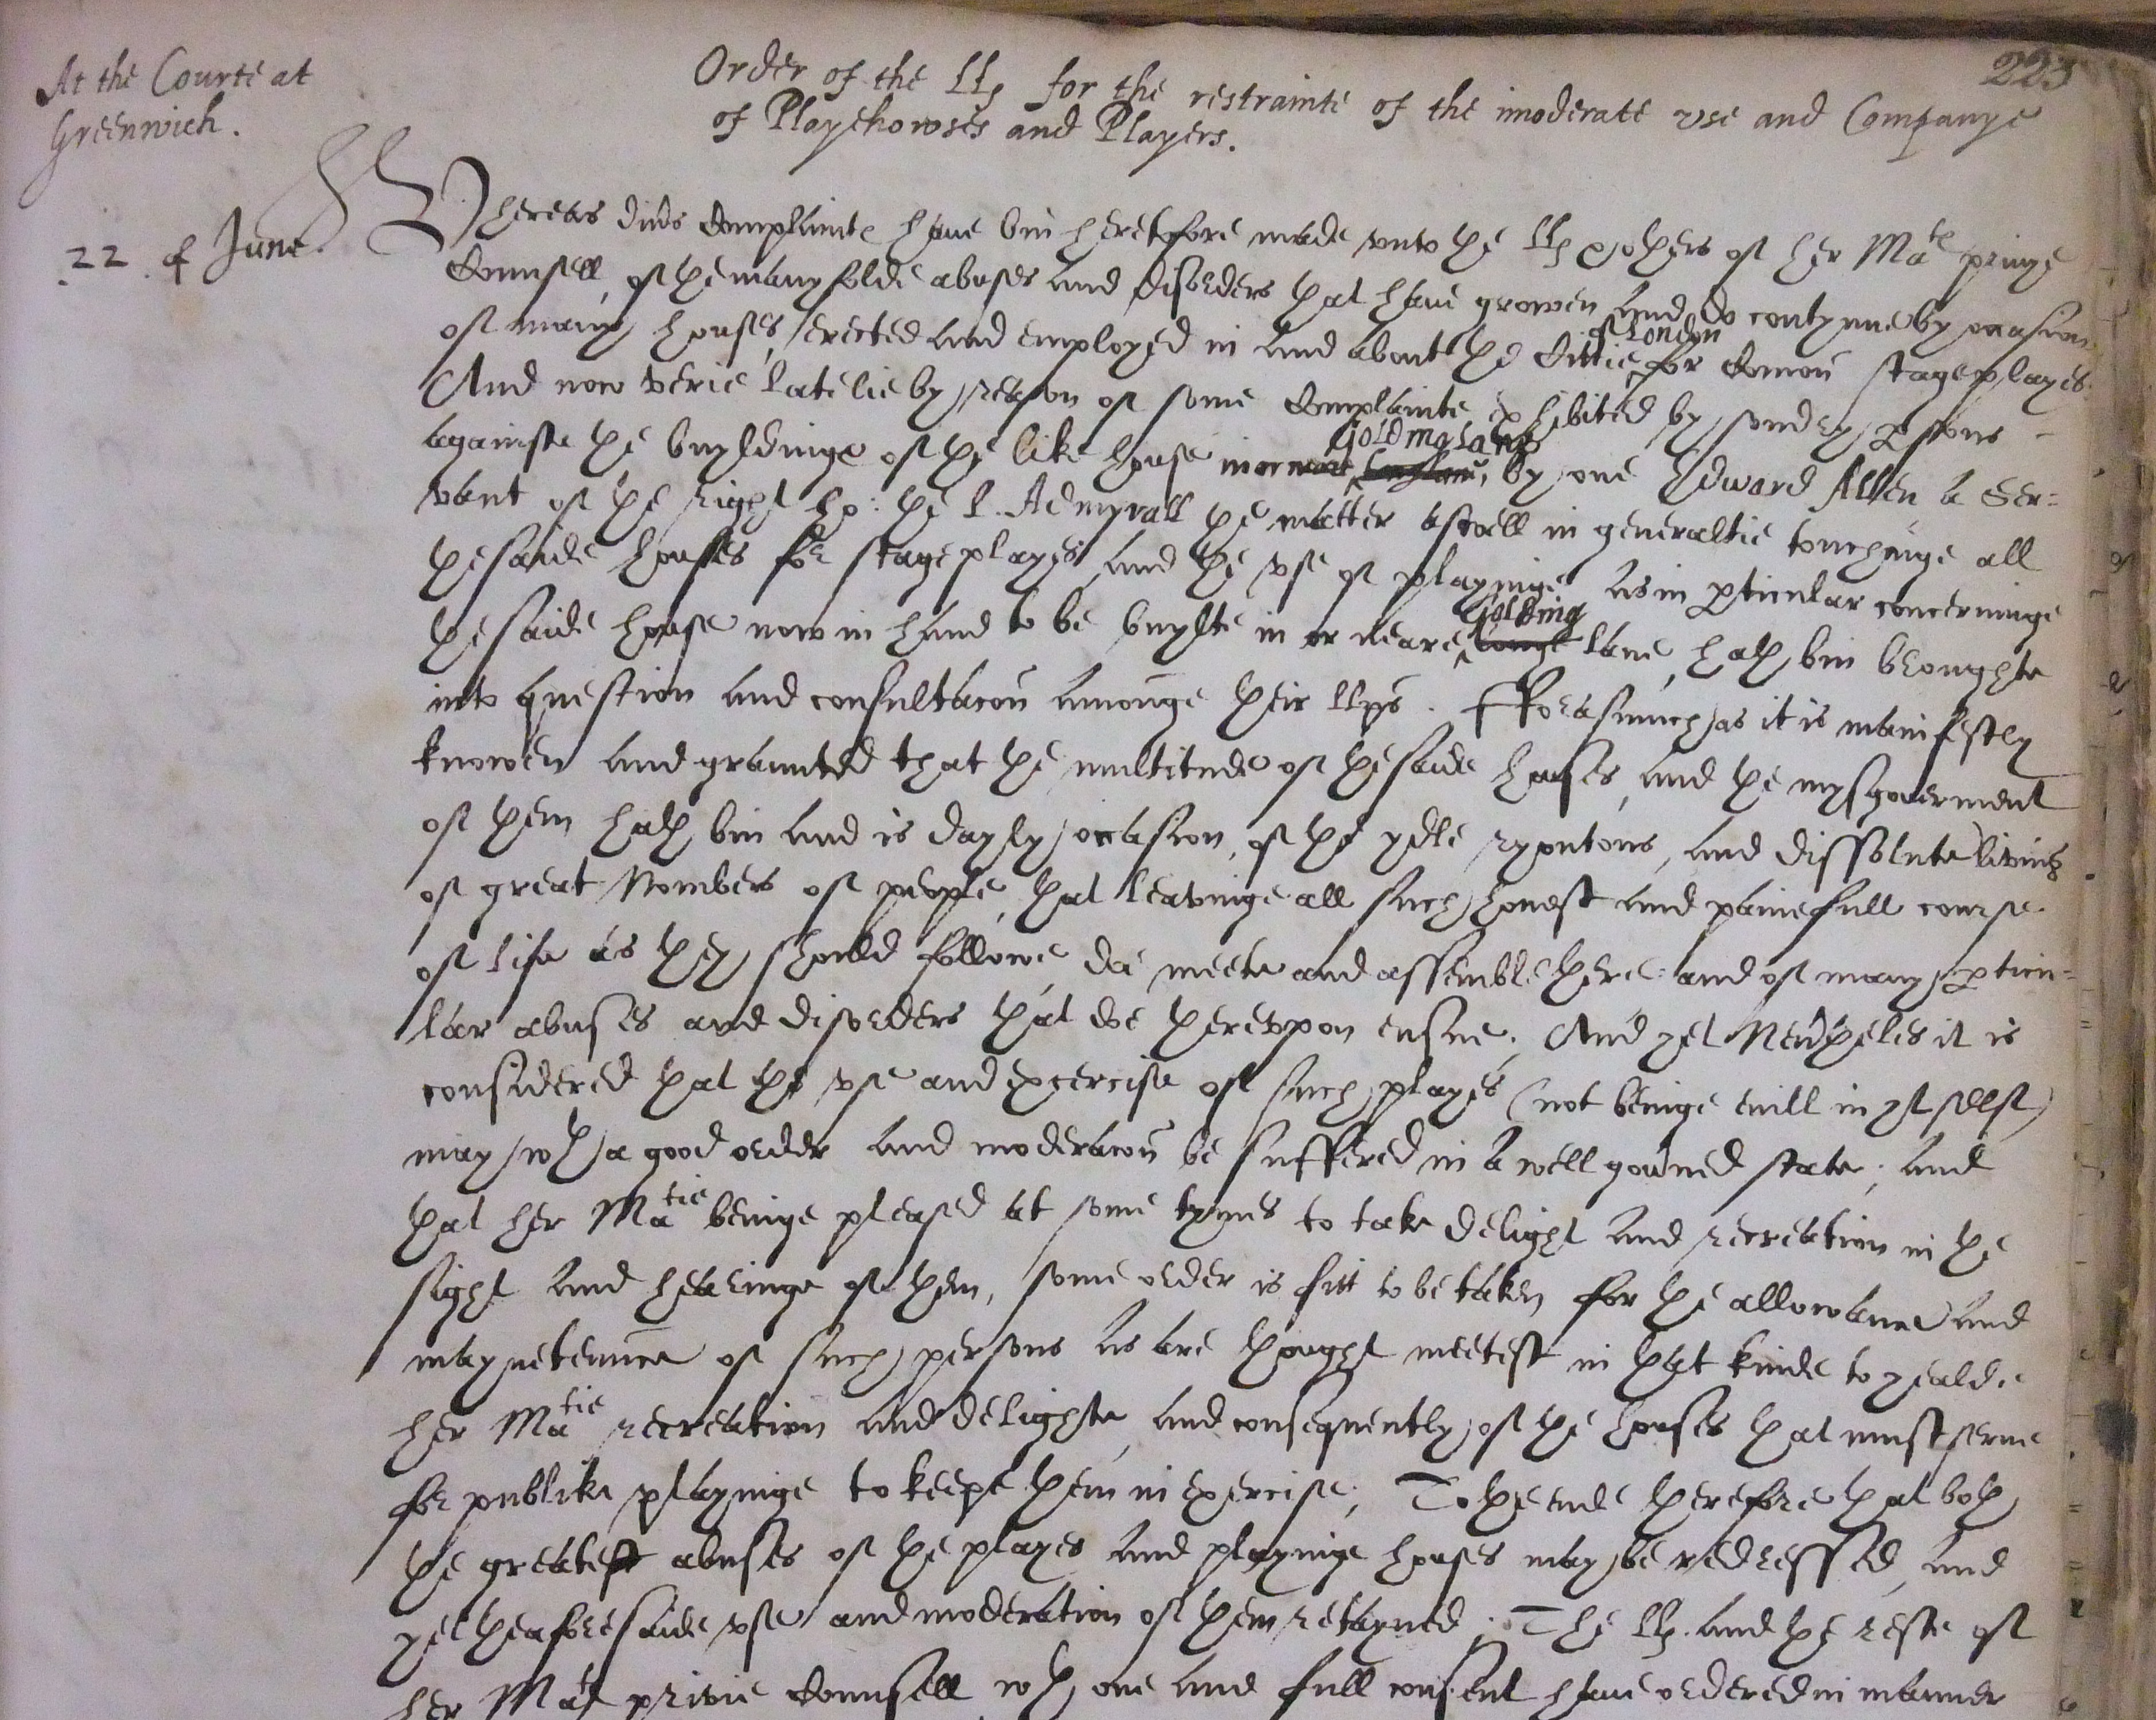 223
At the Courte at
Greenwich.
22 of June.
Order of the LLs for the restrainte of the imoderate vse and Companye
of Playehowses and Players.
Whereas divrs Complaintes have bin heretofore made vnto the LLs & others of her Mates privye
Counsell, of the manyfolde abuses and disorders that have growen and do contynue by occasion
of many houses, erected and employed in and about the Cittie of London for Comon stageplayes.
And now verie latelie by reason of some Complaintes exhibited by sondry psons
againste the buyldinge of the like house in or neare Goldinglane by one Edward Allen a Ser=
vant of the right ho: the L. Admyrall the matter aswell in generaltie touchinge all
the saide houses for stageplayes, and the vse of playinge as in pticular concerninge
the saide house now in hand to be buylte in or neare Golding longe lane, hath bin broughte
into question and consultacon amonge their LLps. Fforasmuch as it is manifestly
knowen and graunted that the multitude of the saide houses, and the mysgoverment
of them hath bin and is dayly occasion, of the ydle ryoutous, and dissolute living
of great Nombers of people, that leavinge all such honest and painefull course
of life as they should followe, doe meete and assemble there and of many pticu=
lar abuses and disorders that doe therevpon ensue. And yet Nevrtheles it is
considered that the vse and excercise of such playes (not beinge evill in yt self)
may wth a good order and moderacon be suffered in a well govrned state, and
that her Matie beinge pleased at some tymes to take delight and recreation in the
sight and hearinge of them, some order is fitt to be taken for the allowance and
maynetenance of such persons as are thought meetest in that kinde to yealde
her Matie recreation and delighte, and consequently of the houses that must serve
for publike playinge to keepe them in exercise. To the ende therefore that both
the greatest abuses of the playes and playinge houses may be redressed, and
yet the aforesaide vse and moderation of them retayned. The LLs. and the reste of
her Mats privie Counsell wth one and full consent have ordered in manner